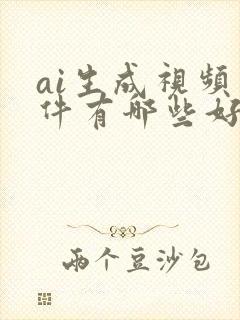 ai生成視頻
件有哪些好
兩个豆沙包